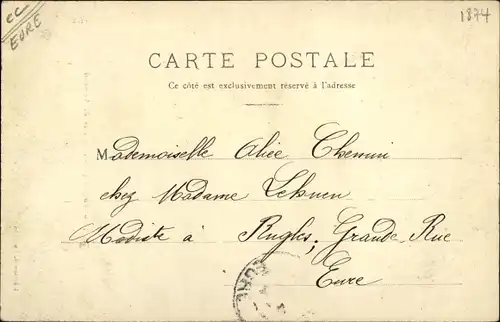 CC
EURE
1874
CARTE POSTALE
Ce côté est exclusivement réservé à l'adresse
Mademoiselle Alice Chemin
chez Madame
Modiste à Rugles, Grande Rue
Eure